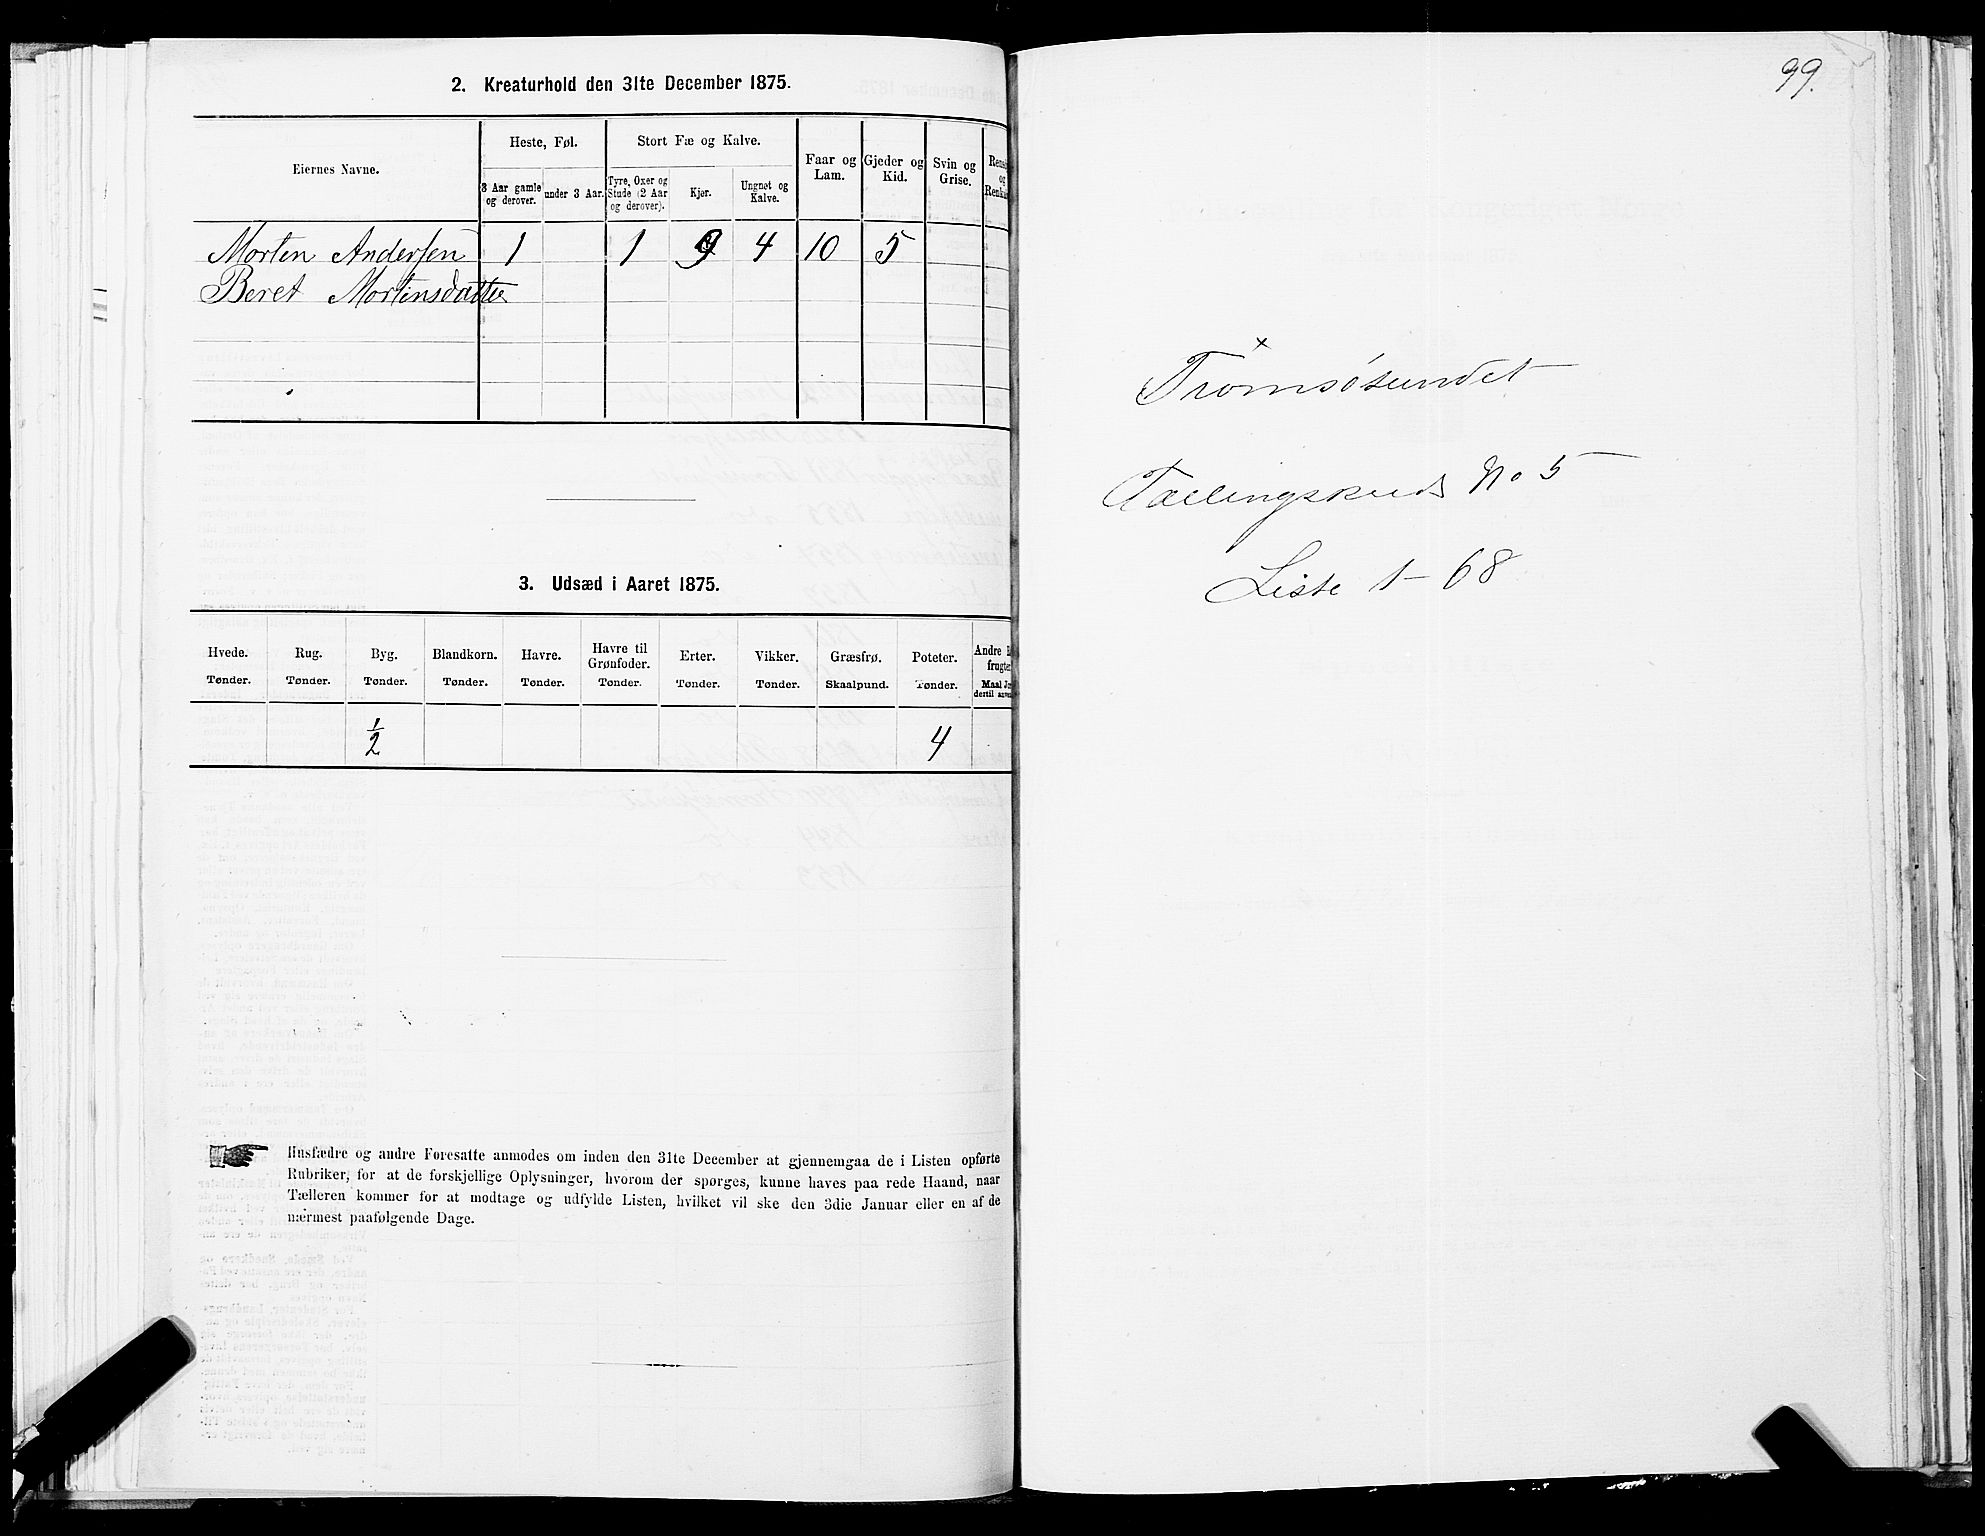 2. Kreaturhold den 31te December 1875.
Eiernes Navne.
Heste, Føl.
Stort Fæ og Kalve.
Faar og Lam.
Gjeder og Kid.
Svin og Grise.
3 Aar gamle og derover.
under 3 Aar.
Tyre, Oxer og Stude (2 Aar og derover).
Kjør.
Ungnøt og Kalve.
Morten Andersen 1 1 9 4 10 5
Beret Mortensdatter
3. Udsæd i Aaret 1875.
Hvede. Rug. Byg. Blandkorn. Havre. Havre til Grønfoder. Erter. Vikker. Græsfrø. Poteter. Andre
Tønder. Tønder. Tønder. Tønder. Tønder. Tønder. Tønder. Tønder. Skaalpund. Tønder.
1/2 4
Husfædre og andre Foresatte anmodes om inden den 31te December at gjennemgaa de i Listen opførte
Rubriker, for at de forskjellige Oplysninger, hvorom der spørges, kunne haves paa rede Haand, naar
Tælleren kommer for at modtage og udfylde Listen, hvilket vil ske den 3die Januar eller en af de
nærmest paafølgende Dage.
99.
x
Tromsösundet
Tællingskreds No 5
Liste 1 - 68